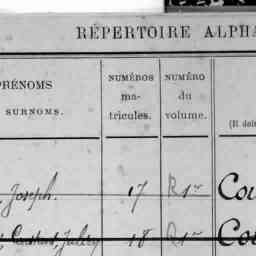 RÉPERTOIRE ALPHA
PRÉNOMS
SURNOMS.
NUMÉROS
ma-
tricules.
NUMÉRO
du
volume.
(Il doit
Joseph. 17 R 1er Cou
18 R 1er Cou